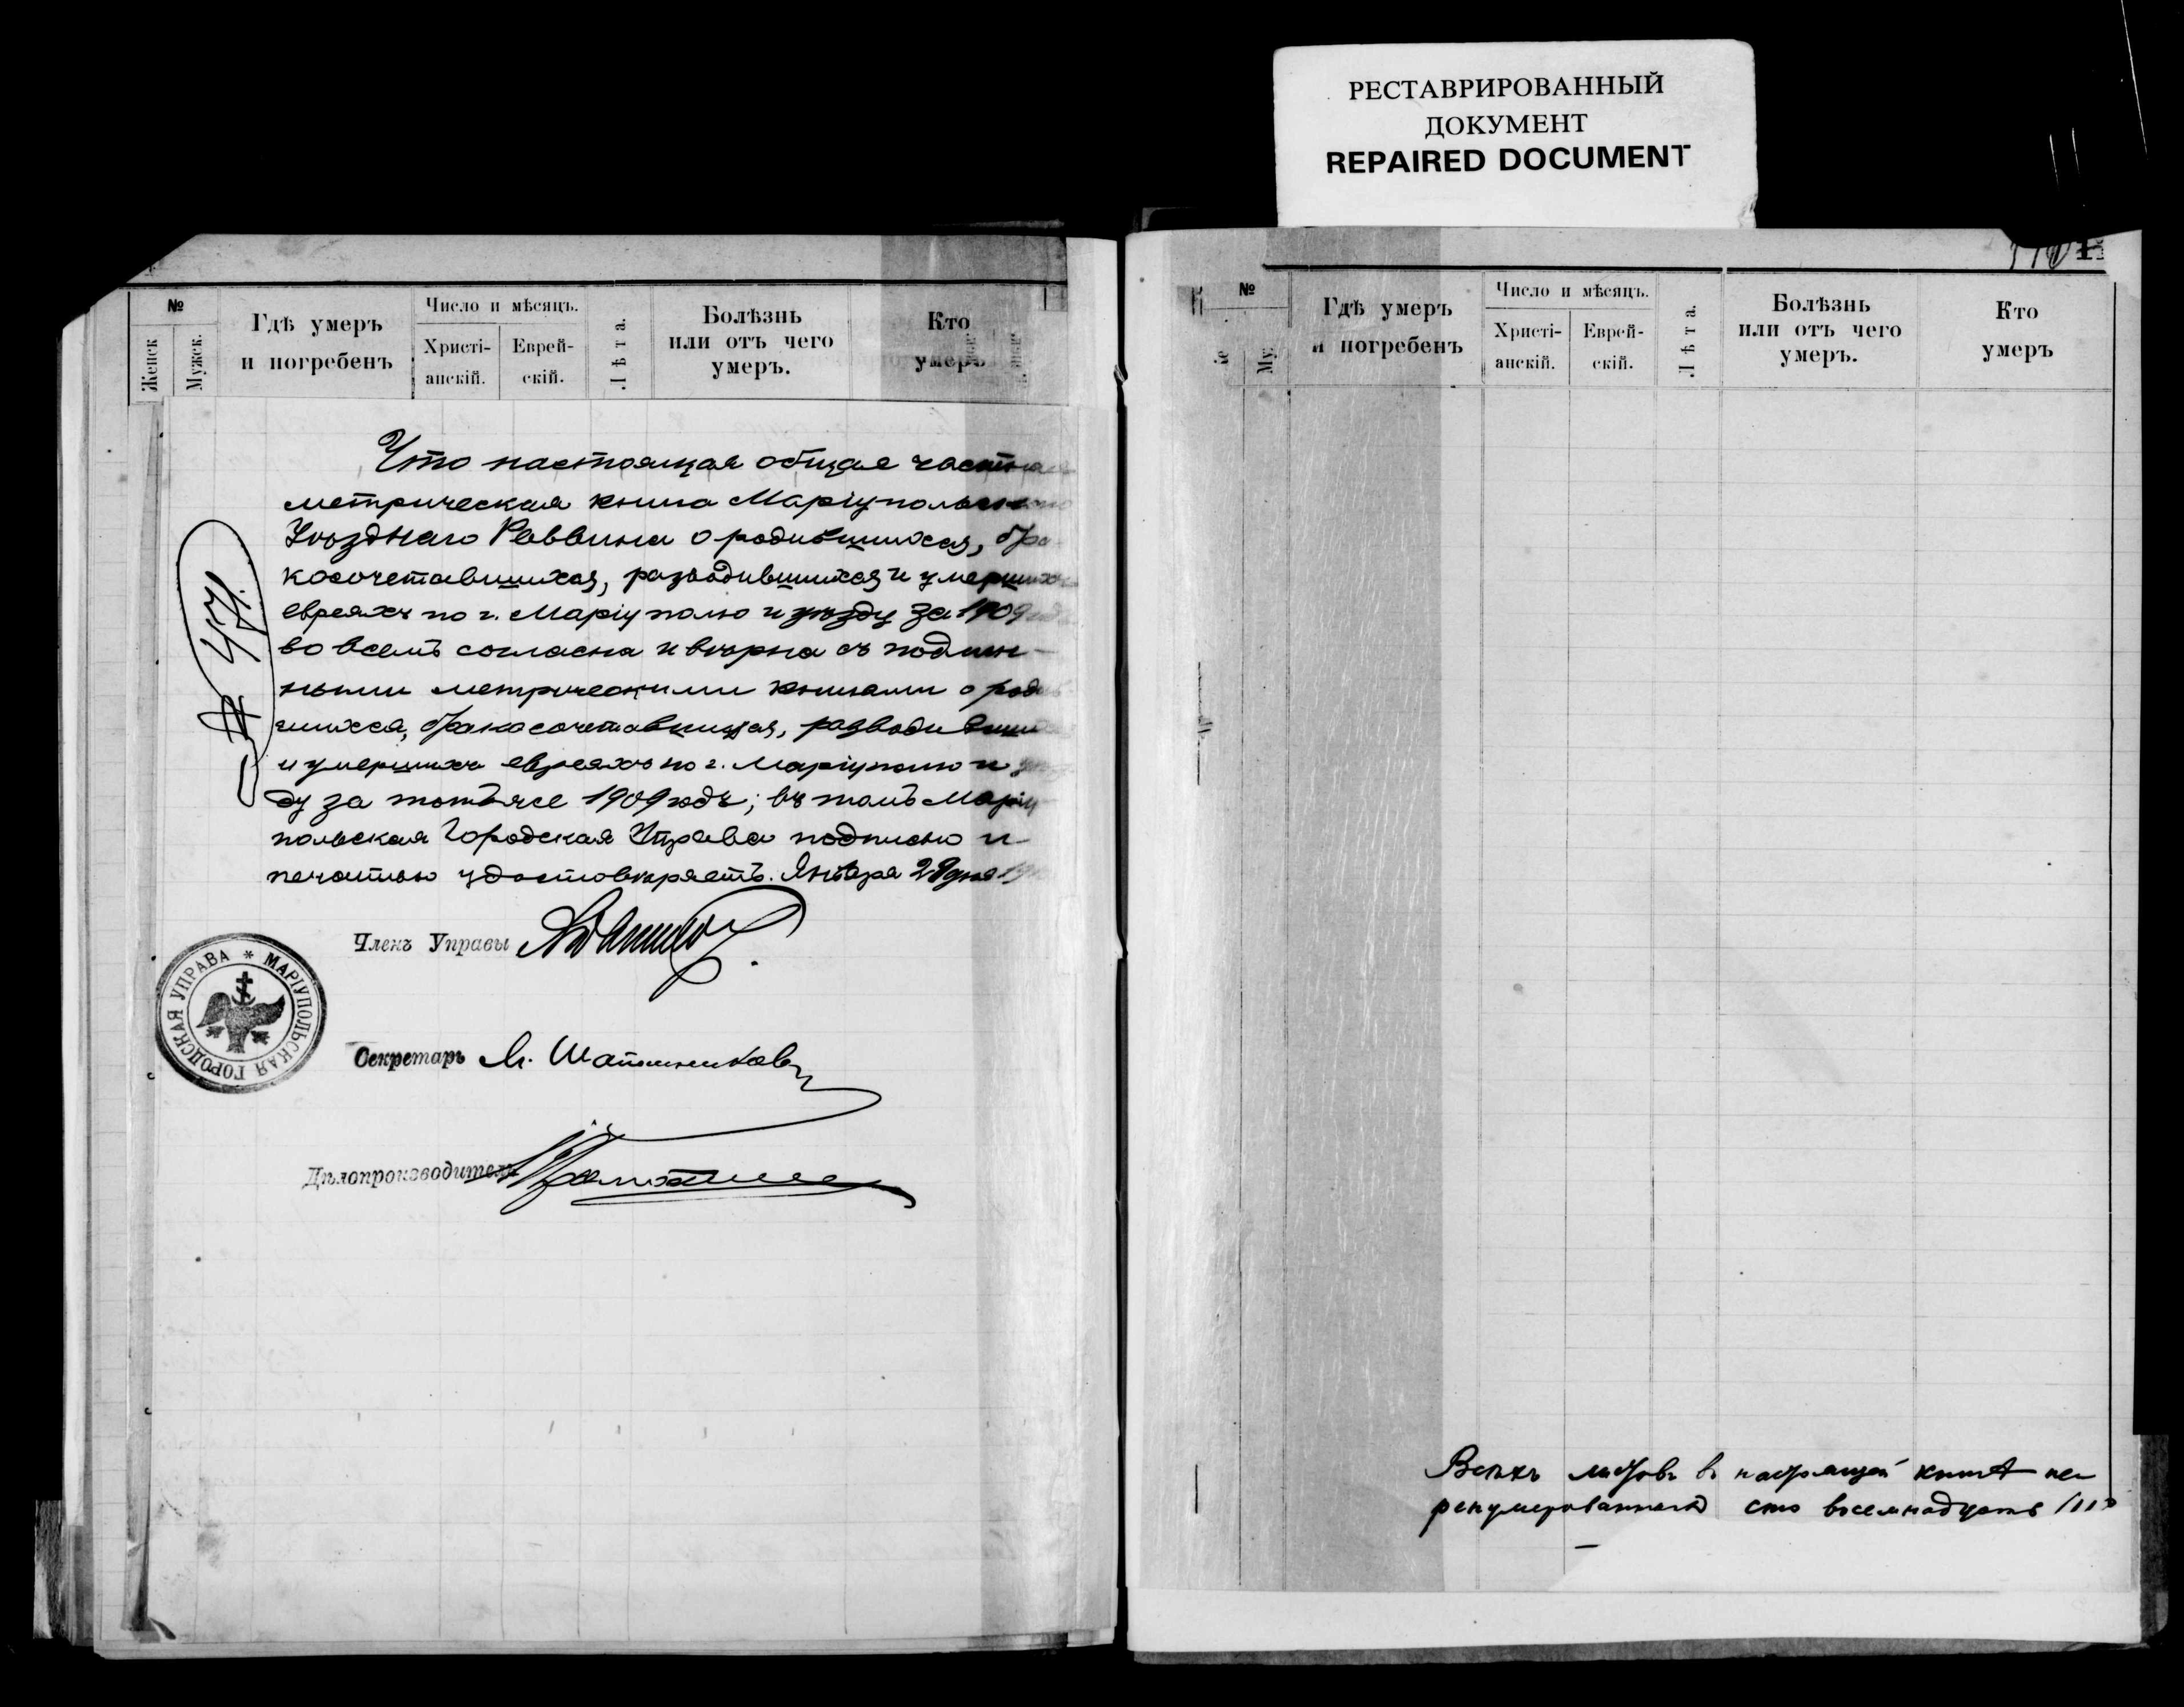 РЕСТАВРИРОВАННЫЙ
ДОКУМЕНТ
REPAIRED DOCUMENT
№
Женск
Мужск.
Гдѣ умеръ
и погребенъ
Число и мѣсяцъ.
Христі-
анскій.
Еврей-
скій.
Лѣта.
Болѣзнь
или отъ чего
умеръ.
Кто
умеръ
Что настоящая общая частная
метрическая книга Маріупольскаго
Уѣзднаго Раввина о родившихся, бра-
косочетавшихся, разводившихся и умершихъ
евреяхъ по г. Маріуполю и уѣзду за 1909
во всемъ согласна и вѣрна съ подлин-
ными метрическими книгами о родив-
шихся, бракосочетавшихся, разводивших
и умершихъ евреяхъ по г. Маріуполю и уѣз
ду за тотъ же 1909 годъ; въ томъ Маріу-
польская Городская Управа подписью и
печатью удостовѣряетъ. Января 28 дня
№
Членъ Управы
МАРІУПОЛЬСКАЯ ГОРОДСКАЯ УПРАВА *
Секретарь
Дѣлопроизводитель
№
Му
Гдѣ умеръ
и погребенъ
Число и мѣсяцъ.
Христі-
анскій.
Еврей-
скій.
Лѣта.
Болѣзнь
или отъ чего
умеръ.
Кто
умеръ
Всѣхъ листовъ въ настоящей книгѣ пе-
ренумерованныхъ сто восемнадцать